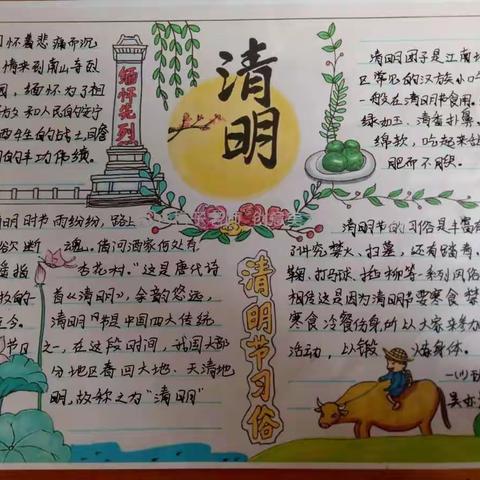 怀着悲痛而沉
情来到南山寺烈
园，缅怀为了祖
方立和人民的安宁
牺牲的战士，回答
们的丰功伟绩。
缅怀先烈
清明
清明团子是江南
区常见的汉族小
一般在清明节食用。
绿如玉、清香扑鼻、
绵软，吃起来
肥而不腴。
清明时节雨纷纷，路上
欲断魂。借问酒家何处有
遥指杏花村。"这是唐代诗
牧的一首《清明》，余韵悠远，
至今。清明节是中国四大传统
节日之一，在这段时间，我国大部
分地区春回大地、天清地
明，故称之为"清明"
清明节习俗
清明节的习俗是丰富
讲究禁火、扫墓，还有踏青、
鞠、打马球、插柳等一系列风俗
相传这是因为清明节要寒食禁
寒食冷餐伤身，所以大家来参加
活动，以锻炼身体。